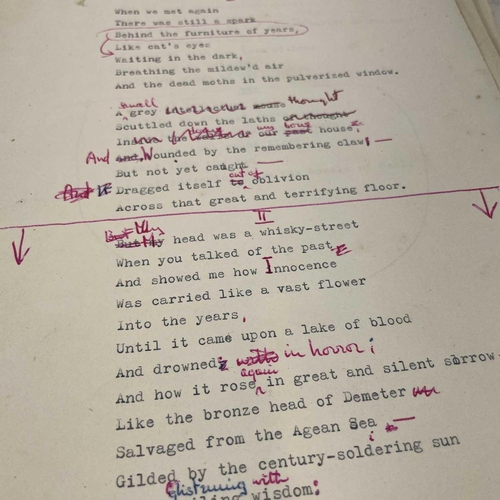 When we met again
There was still a spark
Behind the furniture of years,
Like cat's eyes
Waiting in the dark,
Breathing the mildew'd air
And the dead moths in the pulverized window.
small
A grey mouse thought
Scuttled down the laths of thought
our past house,
And and, Wounded by the remembering claw, —
But not yet caught —
out of
And Dragged itself to oblivion
Across that great and terrifying floor.
II
But My
But My head was a whisky-street
When you talked of the past
And showed me how Innocence
Was carried like a vast flower
Into the years,
Until it came upon a lake of blood
And drowned; in horror;
again
And how it rose in great and silent sorrow
Like the bronze head of Demeter
Salvaged from the Agean Sea —
Gilded by the century-soldering sun
Glistening with
wisdom: